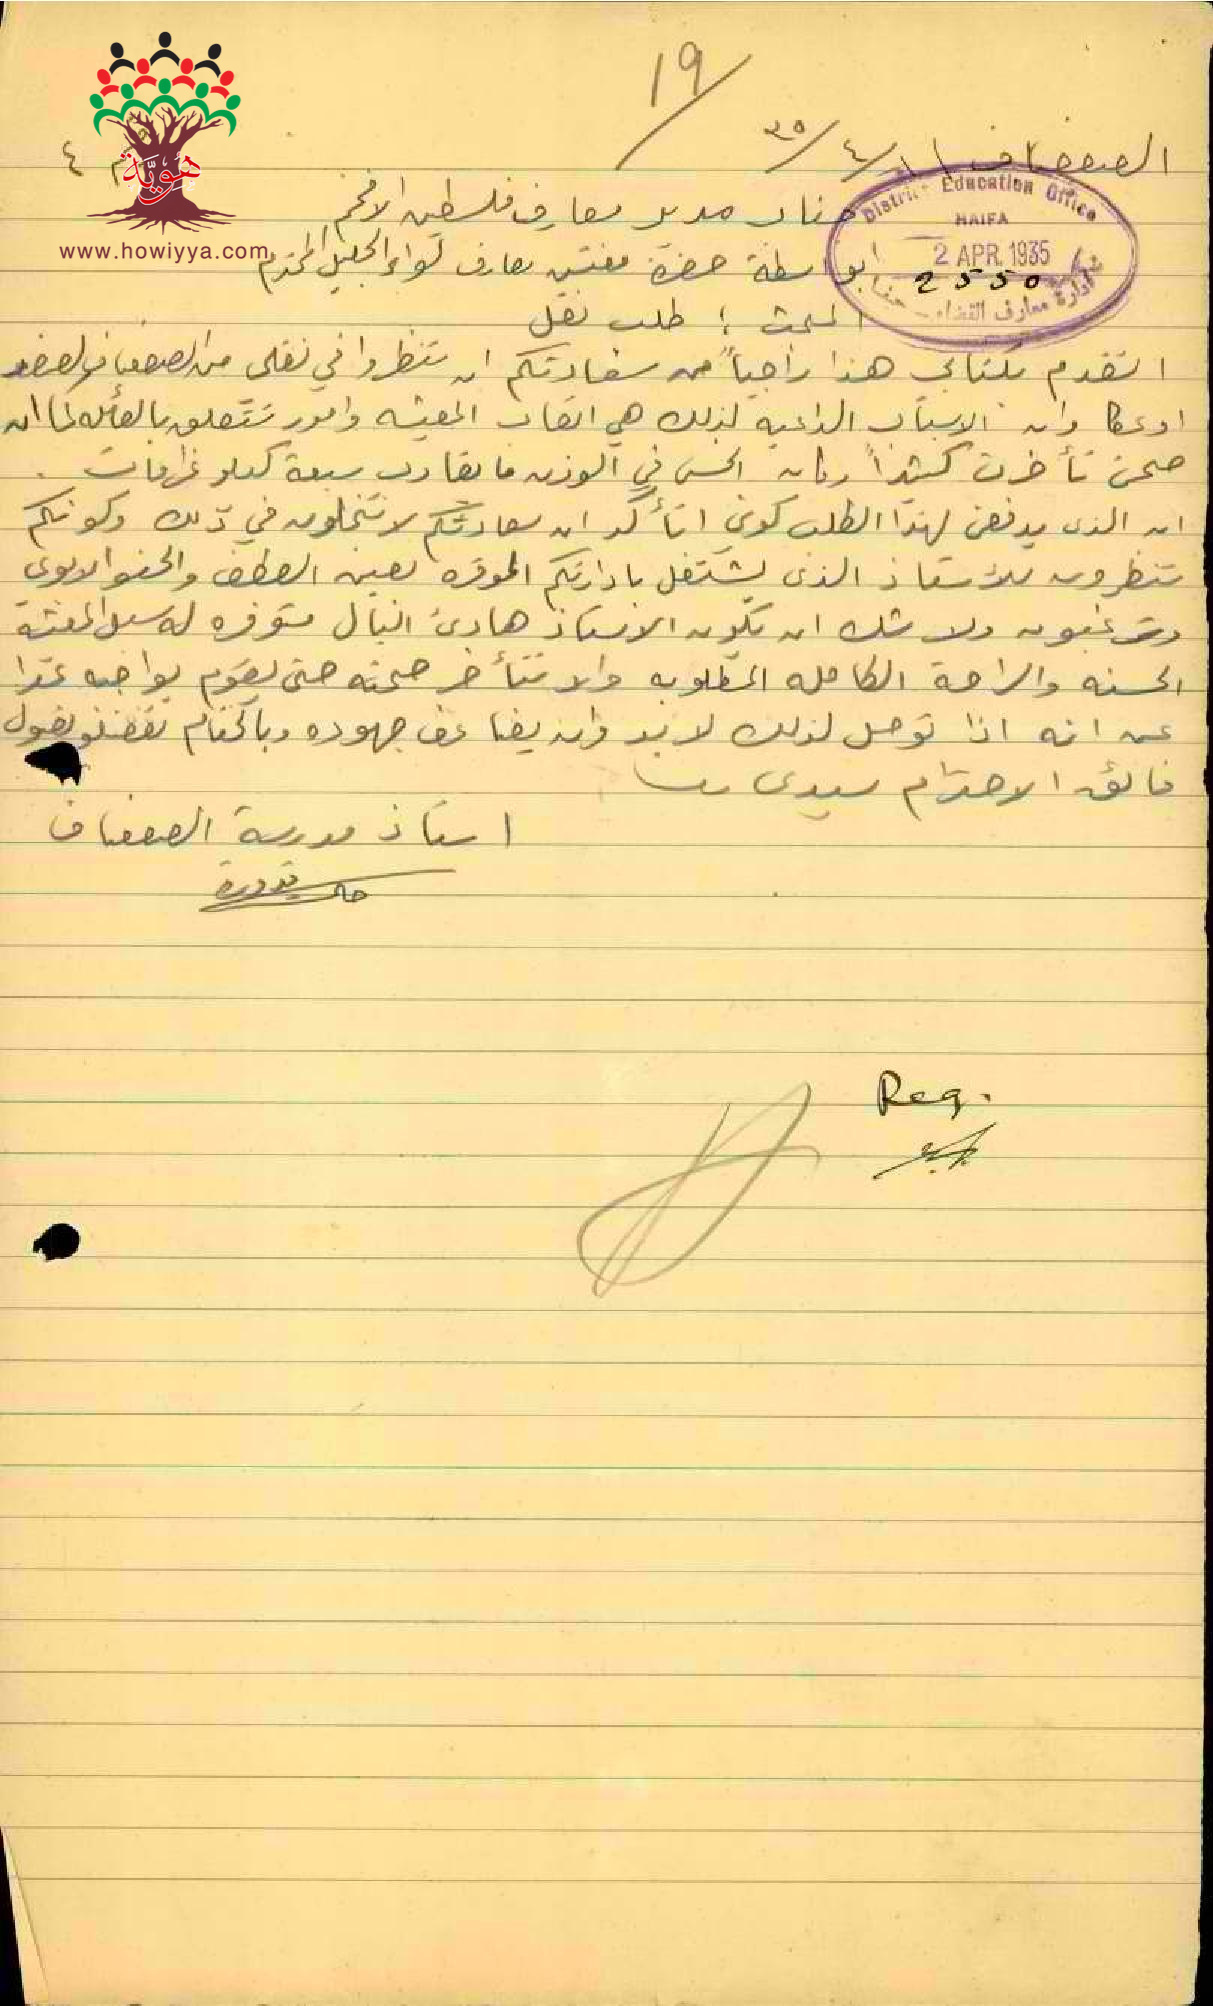 19
الصفصاف ١/٤/٣٥
م ٤
هويّة
www.howiyya.com
District Education Office
HAIFA
2 APR. 1935
2550
ادارة معارف القضاء حيفا
جناب مدير معارف فلسطين الافخم
بواسطة حضرة مفتش معارف لواء الجليل المحترم
البحث : طلب نقل
اتقدم بكتابي هذا راجياً من سعادتكم ان تنظروا في نقلي من الصفصاف لصفد
او عكا وان الاسباب الداعية لذلك هي اتعاب المعيشه وامور تتعلق بالعائله كما ان
صحتي تأخرت كثيراً وكان الخس في الوزن ما يقارب سبعة كيلو غرامات .
ان الذي يدفعني لهذا الطلب كوني اتأكد ان سعادتكم لا تبخلون في ذلك وكونكم
تنظرون للاستاذ الذي يشتغل بادارتكم الموقره بعين العطف والحنو الابوي
وترغبون ولا شك ان يكون الاستاذ هادئ البال متوفره له سبل المعيشة
الحسنه والراحة الكامله المطلوبه والا تتأخر صحته حتى يقوم بواجبه عدا
عن انه اذا توصل لذلك لا بد وان يضاعف جهوده وبالختام تفضلو بقبول
فائق الاحترام سيدي
استاذ مدرسة الصفصاف
قدورة
Reg.